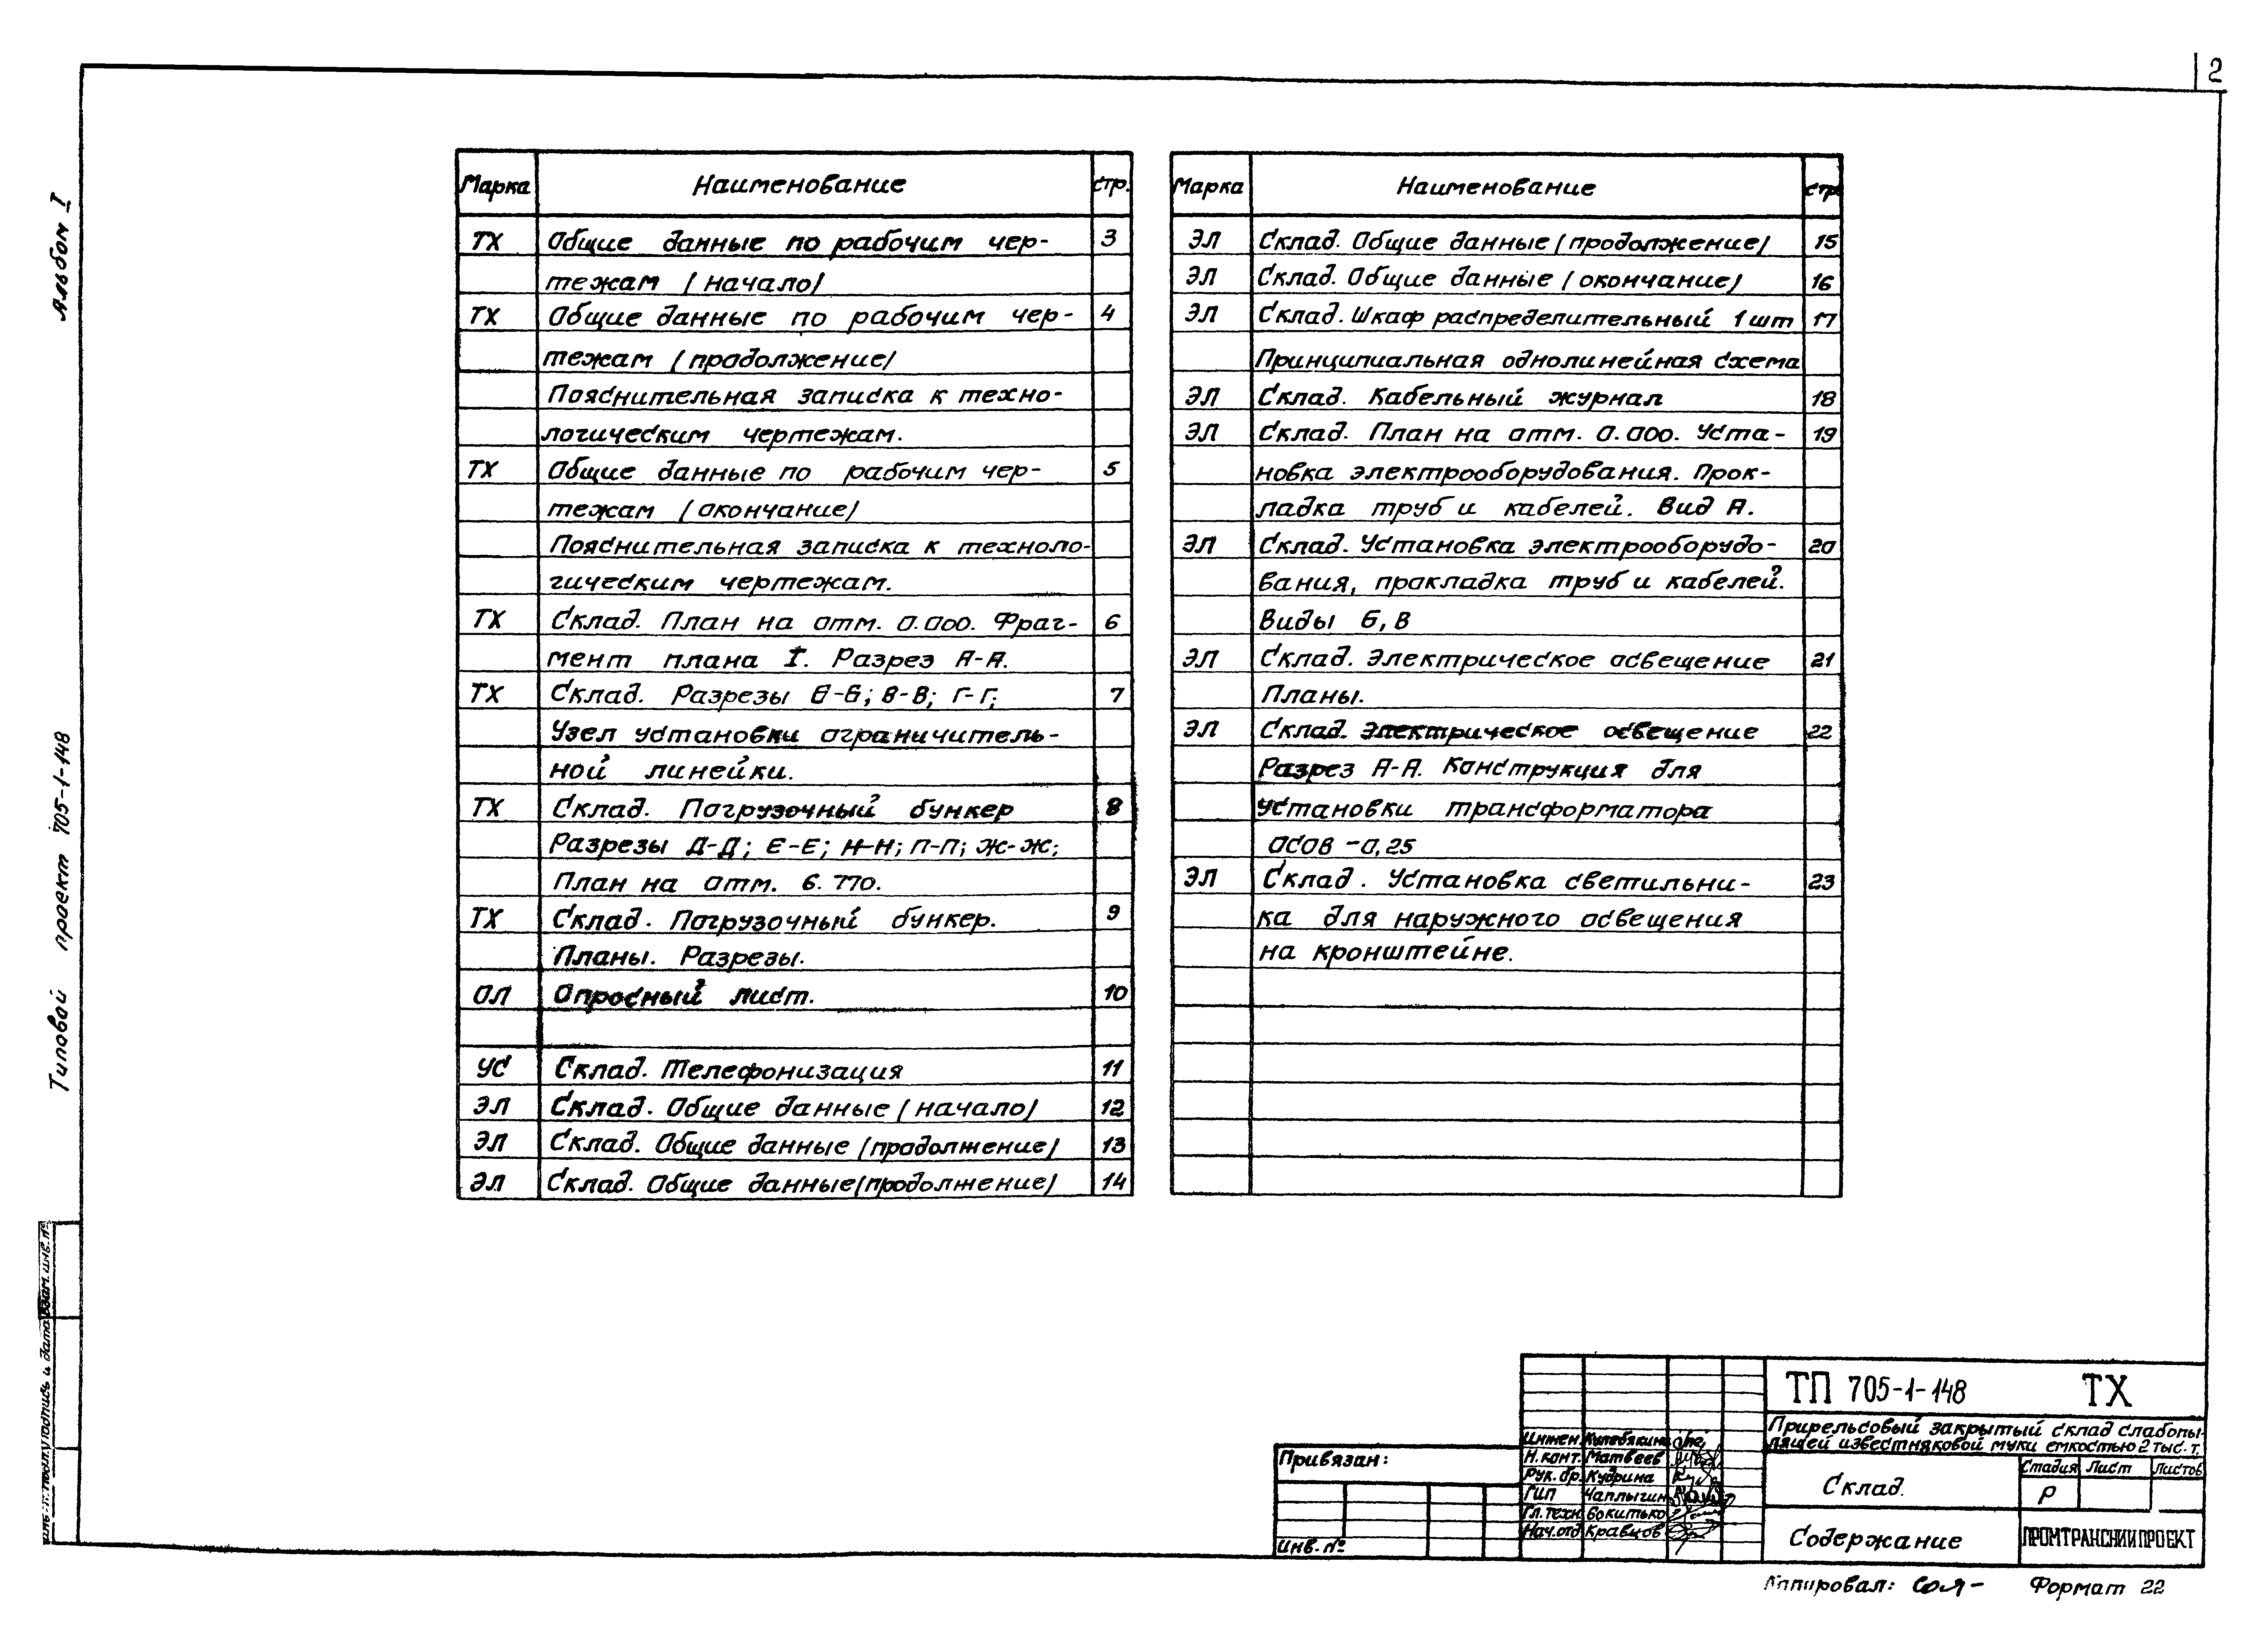 2
Альбом I
Типовой проект 705-1-148
Марка Наименование стр.
ТХ Общие данные по рабочим чер- 3
тежам (начало)
ТХ Общие данные по рабочим чер- 4
тежам (продолжение)
Пояснительная записка к техно-
логическим чертежам.
ТХ Общие данные по рабочим чер- 5
тежам (окончание)
Пояснительная записка к техноло-
гическим чертежам.
ТХ Склад. План на отм. 0.000. Фраг- 6
мент плана I. Разрез А-А.
ТХ Склад. Разрезы Б-Б; В-В; Г-Г; 7
Узел установки ограничитель-
ной линейки.
ТХ Склад. Погрузочный бункер 8
Разрезы Д-Д; Е-Е; Н-Н; П-П; Ж-Ж;
План на отм. 6.770.
ТХ Склад. Погрузочный бункер. 9
Планы. Разрезы.
ОЛ Опросный лист. 10
УС Склад. Телефонизация 11
ЭЛ Склад. Общие данные (начало) 12
ЭЛ Склад. Общие данные (продолжение) 13
ЭЛ Склад. Общие данные (продолжение) 14
Марка Наименование стр
ЭЛ Склад. Общие данные (продолжение) 15
ЭЛ Склад. Общие данные (окончание) 16
ЭЛ Склад. Шкаф распределительный 1 шт 17
Принципиальная однолинейная схема
ЭЛ Склад. Кабельный журнал 18
ЭЛ Склад. План на отм. 0.000. Уста- 19
новка электрооборудования. Прок-
ладка труб и кабелей. Вид А.
ЭЛ Склад. Установка электрооборудо- 20
вания, прокладка труб и кабелей.
Виды Б, В
ЭЛ Склад. Электрическое освещение 21
Планы.
ЭЛ Склад. Электрическое освещение 22
Разрез А-А. Конструкция для
установки трансформатора
ОСОВ-0,25
ЭЛ Склад. Установка светильни- 23
ка для наружного освещения
на кронштейне.
Взам. инв. №
Подпись и дата
ТП 705-1-148 ТХ
Прирельсовый закрытый склад слабопы-
лящей известняковой муки емкостью 2 тыс. т.
Привязан:
Инв. №
Инжен.
Н. конт. Матвеев
Рук. бр. Кудрина
ГИП Чаплыгин
Гл. техн. Вокитько
Нач. отд Кравцов
Склад.
Стадия Лист Листов
Р
Содержание
ПРОМТРАНСНИИПРОЕКТ
Копировал: Формат 22